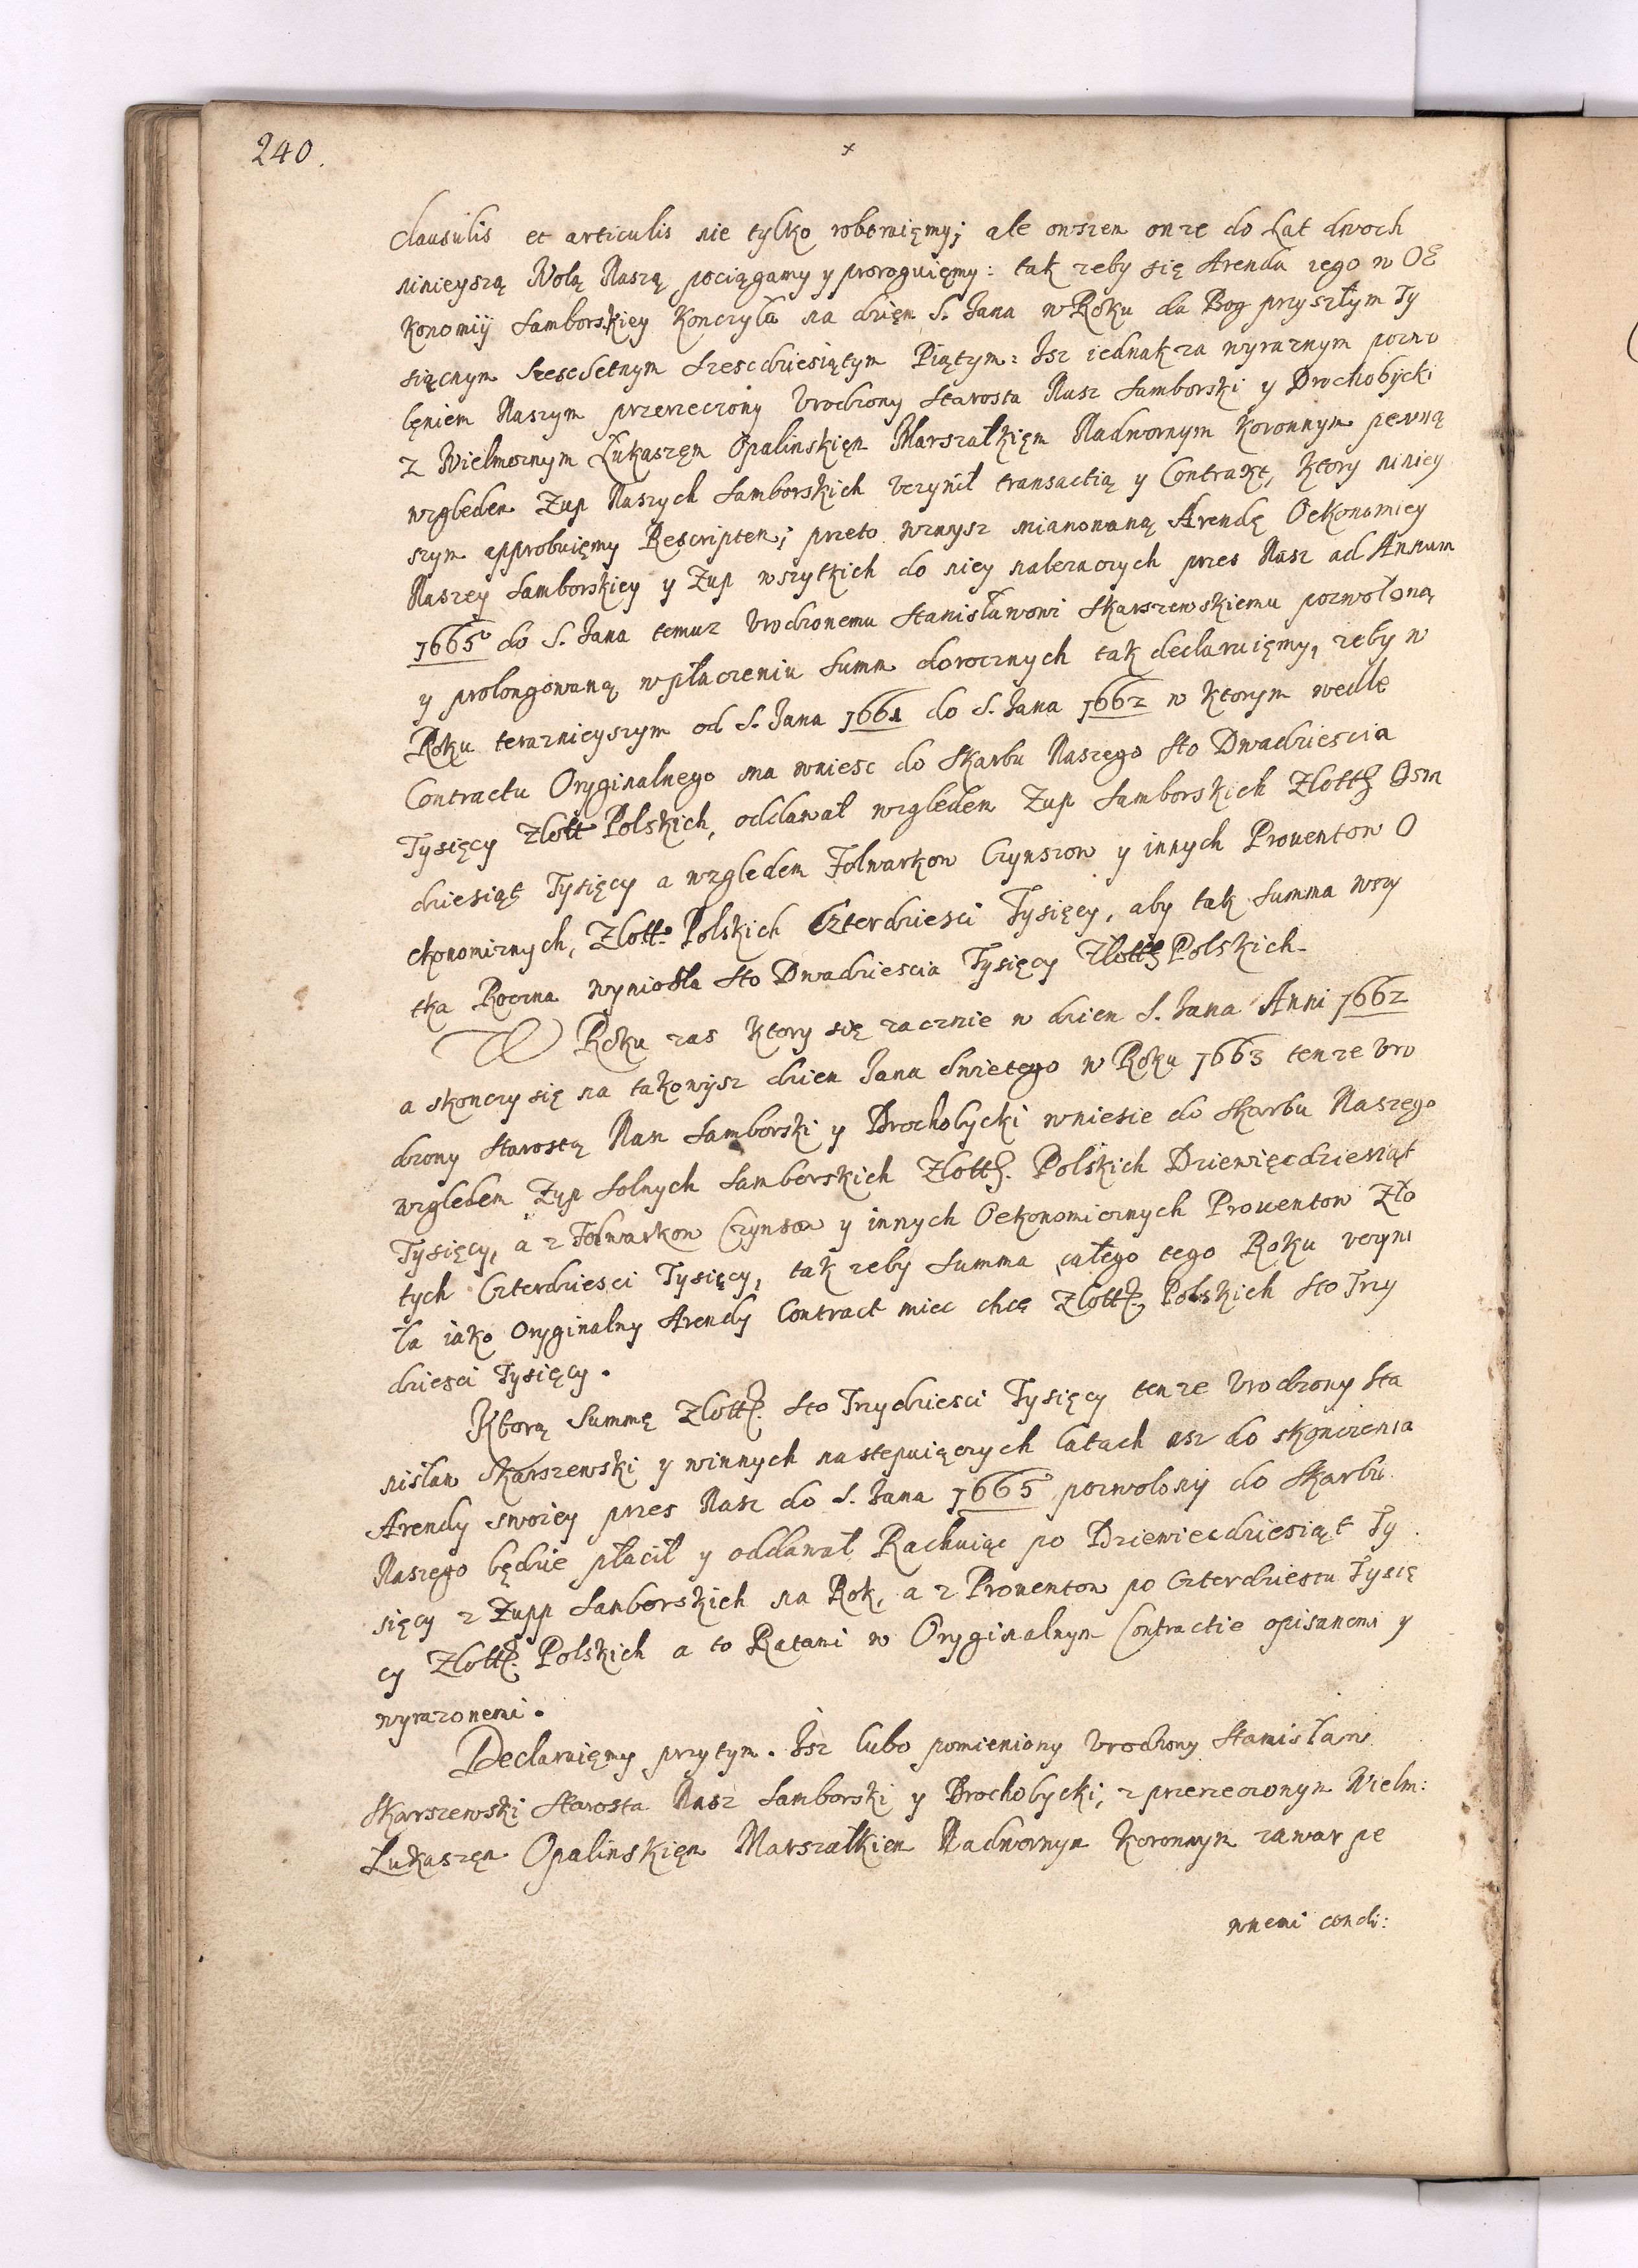 240.
x
clausulis et articulis nie tylko roboruięmy; ale owszem onze do Lat dwoch
ninieyszą Wolą Naszą pociągamy y proroguięmy: tak zeby się Arenda iego w OE
konomiÿ Samborskiey Konczyła na dzięn S. Jana w Roku da Bog przyszłym Ty
siącnym Szescsetnym Szescdziesiątym Piątym: Isz iednak za wyraznym pozwo
lęniem Naszym przerzeczony Vrodzony Starosta Nasz Samborski y Drochobycki
z Wielmoznym Łukaszęm Opalinskięm Marszałkięm Nadwornym Koronnym pewną
względem Zup Naszych Samborskich Vczynił transactią y Contrakt, ktory niniey
szym approbuięmy Rescriptem; przeto wzwysz mianowaną Arendę Oekonomiey
Naszey Samborskiey y Zup wszytkich do niey nalezaczych przes Nasz ad Annum
1665º do S. Jana temuz Vrodzonemu Stanisławowi Skarszewskiemu pozwoloną
y prolongowaną w płaczeniu Summ dorocznych tak declaruięmy, zeby w
Roku teraznieyszym od S. Jana 1661 do S. Jana 1662 w ktorym wedle
Contractu Oryginalnego ma wniesc do Skarbu Naszego Sto Dwadziescia
Tysięcy Zlott Polskich, oddawał względem Zup Samborskich Zlottß Osm
dziesiąt Tysięcy a względem Folwarkow Czynszow y innych Prouentow O
ekonomicznych, Zlott: Polskich Czterdziesci Tysięcy, aby tak Summa wszy
tka Roczna wyniosła Sto Dwadziescia Tysięcy Zlottß Polskich.
W Roku zas ktory się zacznie w dzien S. Jana Anni 1662
a skonczy się na takowysz dzien Jana Swietego w Roku 1663 tenze Vro
dzony Starostą Nasz Samborski y Drochobycki wniesie do Skarbu Naszego
względem Zup Solnych Samborskich Zlottß. Polskich Dziewięcdziesiąt
Tysięcy, a z Folwarkow Czynszow y innych Oekonomicznych Prouentow Zło
tych Czterdziesci Tysięcy, tak zeby Summa całego tego Roku vczyni
ła iako Oryginalny Arendy Contract miec chcę Zlottß. Polskich Sto Trzy
dziesci Tysięcy.
Ktorą Summę Zlottß. Sto Trzydziesci Tysięcy tenze Vrodzony Sta
nisław Skarszewski y winnych nastepuięczych Latach asz do skonczenia
Arendy swoiey przes Nasz do S. Jana 1665 pozwolony do Skarbu
Naszego będzie płacił y oddawał Rachuiąc po Dziewiecdziesiąt Ty
sięcy z Zupp Samborskich na Rok, a z Prouentow po Czterdziestu Tysię
cy Zlottß. Polskich a to Ratami w Oryginalnym Contractie opisanemi y
wyrazonemi.
Declaruięmy przytym. Isz lubo pomieniony Vrodzony Stanisław
Skarszewski Starosta Nasz Samborski y Drochobycki, z przerzeczonym Wielm:
Łukaszęm Opalinskięm Marszałkiem Nadwornym Koronnym zawar pe
wnemi condi: